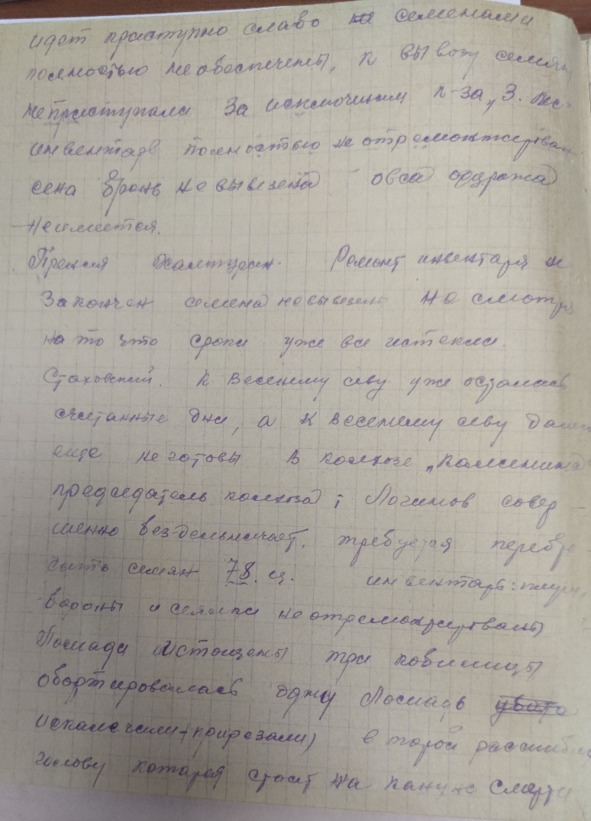 идет приступно слабо семенами
полностью не обеспечены, к вывозу семян
не приступали За исключением к-за "З.
инвентарь полностью не отремонтирован
сена бронь не вывезена овса фуража
не имеется.
Прения Ремонт инвентаря не
Закончен семена не вывезены не смотря
на то что сроки уже все истекли.
Стаховский. К весенему севу уже остались
считанные дни, а к весенему севу далеко
еще не готовы В колхозе "Калинина"
председатель колхоза т Логинов совер
шенно бездельничает. требуется перебро
сить семян 78 ц. инвентарь: плуги,
бороны и сеялки не отремонтированы
Лошади истощены три кобылицы
обортировались одну Лошадь убито
искалечили (прирезали) в торой расшибли
голову которая стоит на кануне смерти